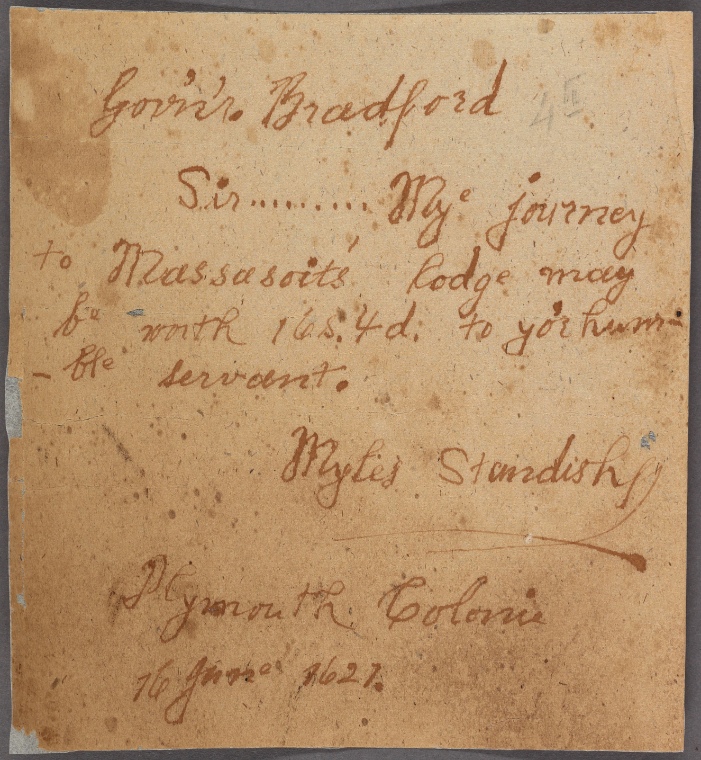 Gov'n'r. Bradford
Sir......... Mye journey
to Massasoits' lodge may
be worth 16s. 4d. to yor hum-
-ble servant.
Myles Standish
Plymouth Colonie
16 June 1621.